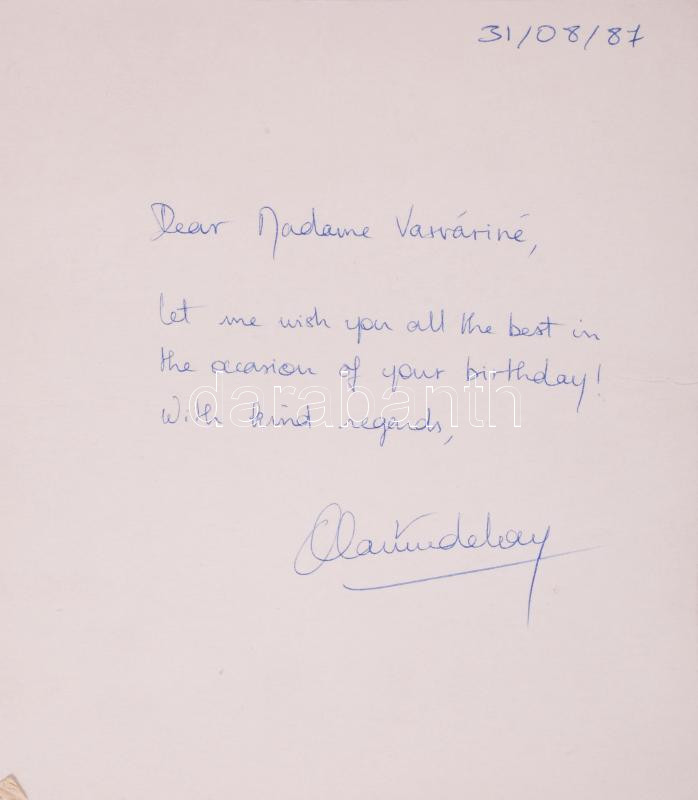 31/08/87
Dear Madame Vasváriné,
let me wish you all the best in
the occasion of your birthday!
darabanth
With kind regards,